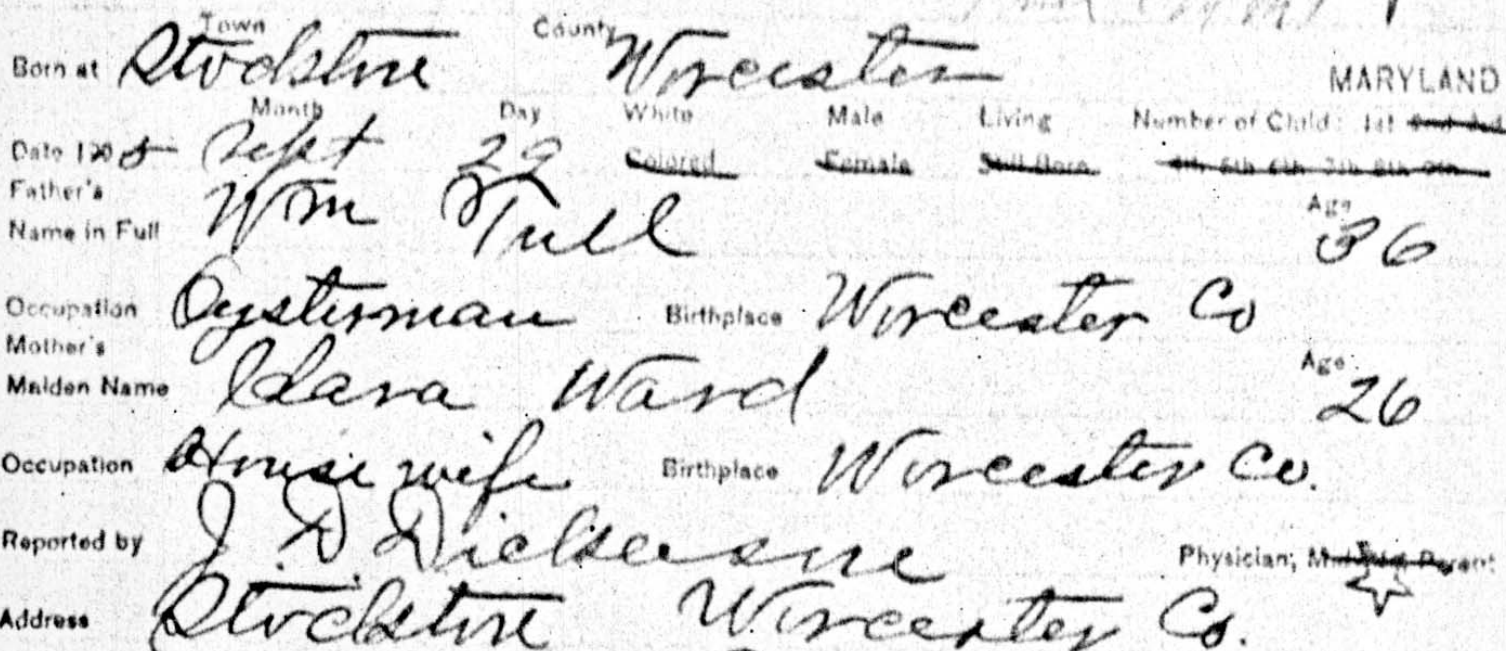 Town County
Born at Stockton Worcester MARYLAND
Month Day White Male Living Number of Child: 1st 2nd 3rd
Date 1905 Sept 29 Colored Female Still Born 4th 5th 6th 7th 8th 9th
Father's Age
Name in Full Wm Tull 36
Occupation Oysterman Birthplace Worcester Co
Mother's Age
Maiden Name Clara Ward 26
Occupation Housewife Birthplace Worcester Co.
Reported by J. D. Dickerson Physician, Midwife, Parent
Address Stockton Worcester Co.